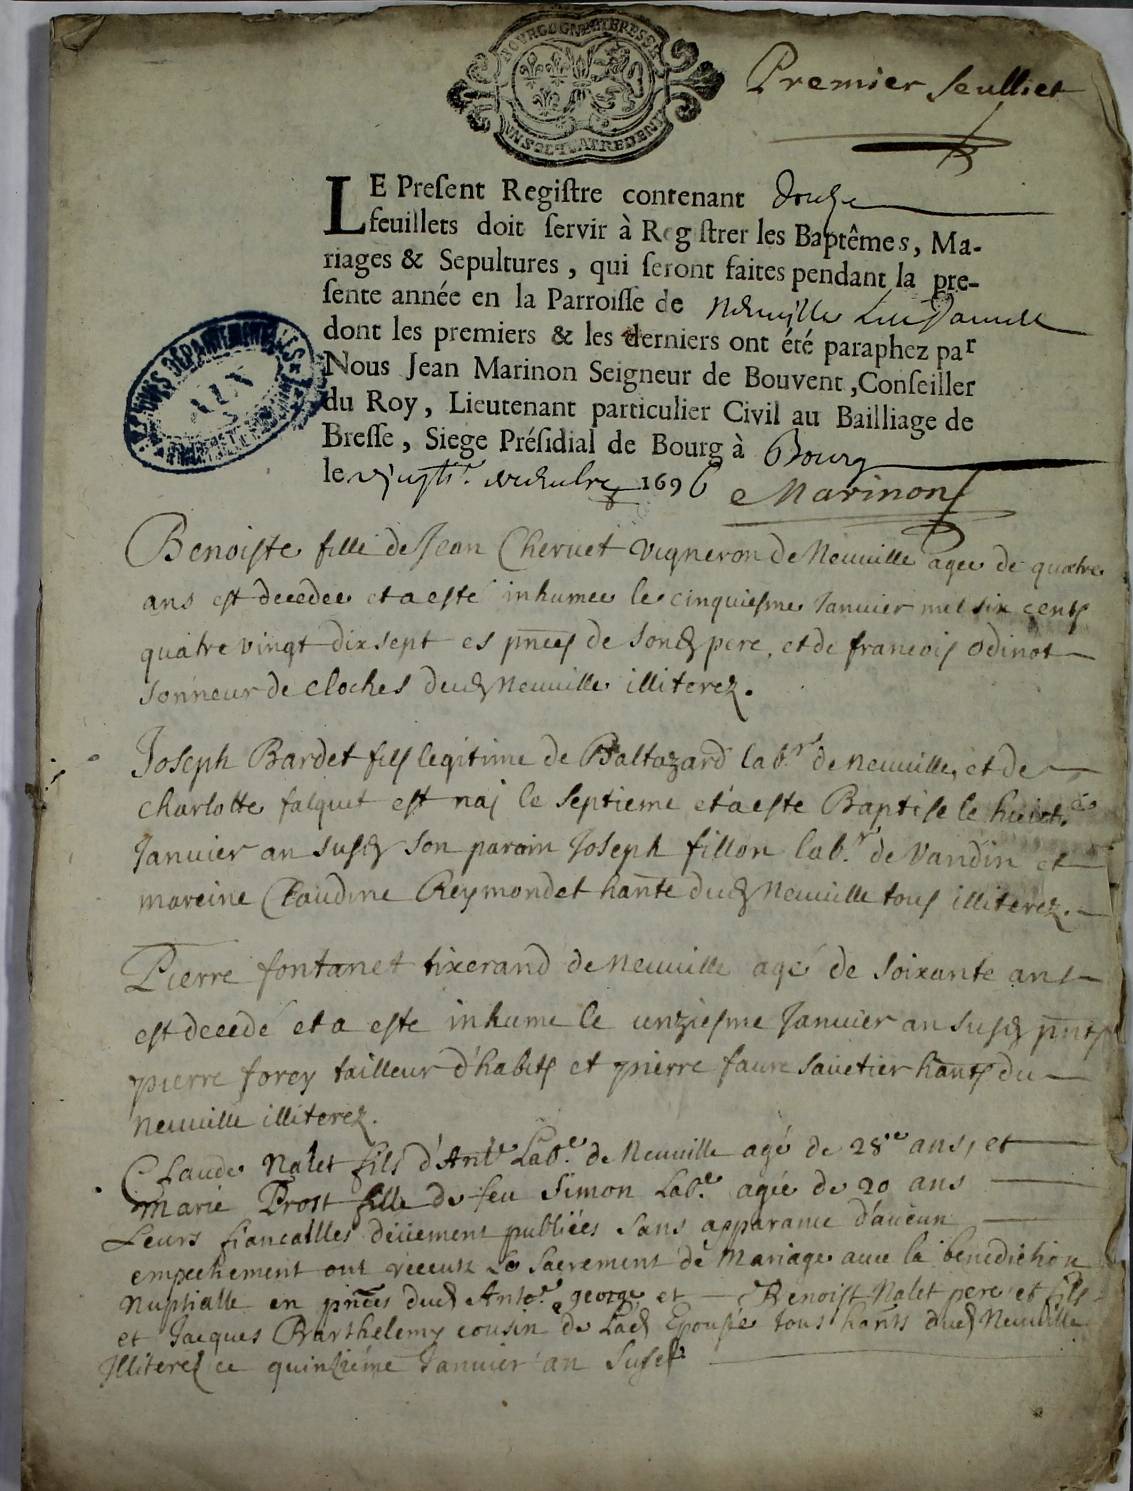 BOURGOGNE ET BRESSE
UN SOL QUATRE DEN
Premier feulliet
LE Preſent Regiſtre contenant douze
feuillets doit ſervir à Regiſtrer les Baptêmes, Ma-
riages & Sepultures, qui ſeront faites pendant la pre-
ſente année en la Parroiſſe de neuville
dont les premiers & les derniers ont été paraphez par
Nous Jean Marinon Seigneur de Bouvent, Conſeiller
du Roy, Lieutenant particulier Civil au Bailliage de
Breſſe, Siege Préſidial de Bourg à Bourg
le 1696 Marinon
ARCHIVES DÉPARTEMENTALES
AIN
Benoiſte fille de Jean Chervet vigneron de Neuville agee de quatre
ans est decedee et a esté inhumee le cinquieſme Janvier mil six cents
quatre vingt dix sept es pnces de sond pere, et de francois odinot
sonneur de cloches dud Neuville illiterez.
Joseph Bardet fils legitime de Baltazard lab.r de neuville, et de
charlotte falquet est naj le septieme et a este Baptise le huict.e
Janvier an susd son parain Joseph fillon lab.r de Vandin et
mareine Claudine Reymondet hante dud Neuville tous illiterez.
Pierre fontanet tixerand de Neuville agé de soixante ans
est decedé et a este inhume le unzieſme Janvier an susd pnts
pierre forey tailleur d'habits et pierre faure savetier hants du
neuville illiterez.
Claude Nalet fils d'Ant.e Lab.r de Neuville agé de 28.e ans, et
Marie Prost fille de feu Simon Lab.r agée de 20 ans
Leurs fiancailles düement publiées sans apparance d'aucun
empechement ont receux Le Sacrement de Mariage avec la benediction
Nuptialle en pnces dud Ant.e george et Benoist Nalet pere et fils
et Jacques Barthelemy cousin de Lad Epousée tous hants dud Neuville
Illiterez ce quinziéme Janvier an Susd